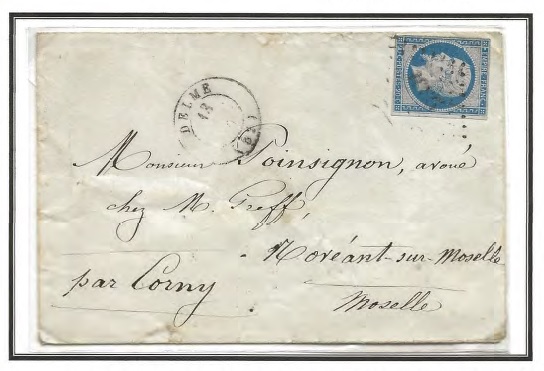 DELME
13
(52)
Monsieur Poinsignon, avoué
chez M. Greff,
Novéant-sur-Moselle
par Corny.
Moselle